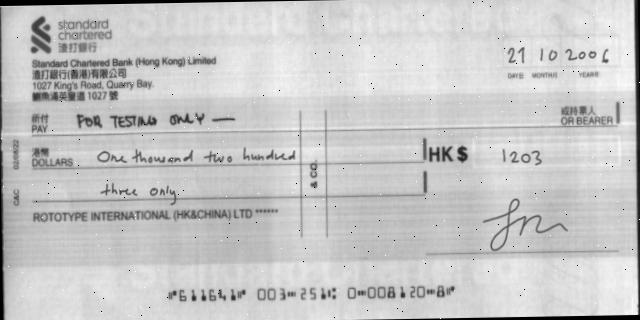 standard
chartered
渣打銀行
Standard Chartered Bank (Hong Kong) Limited
渣打銀行(香港)有限公司
1027 King's Road, Quarry Bay.
鰂魚涌英皇道 1027 號
21 10 2006
DATE MONTHS YEARS
祈付
PAY
FOR TESTING ONLY —
或持票人
OR BEARER
港幣
DOLLARS
One thousand two hundred
three only
HK$ 1203
& CO.
C&C 02/08/22
ROTOTYPE INTERNATIONAL (HK&CHINA) LTD ******
⑈611641⑈ 003⑉251⑆ 0⑉008120⑉8⑈